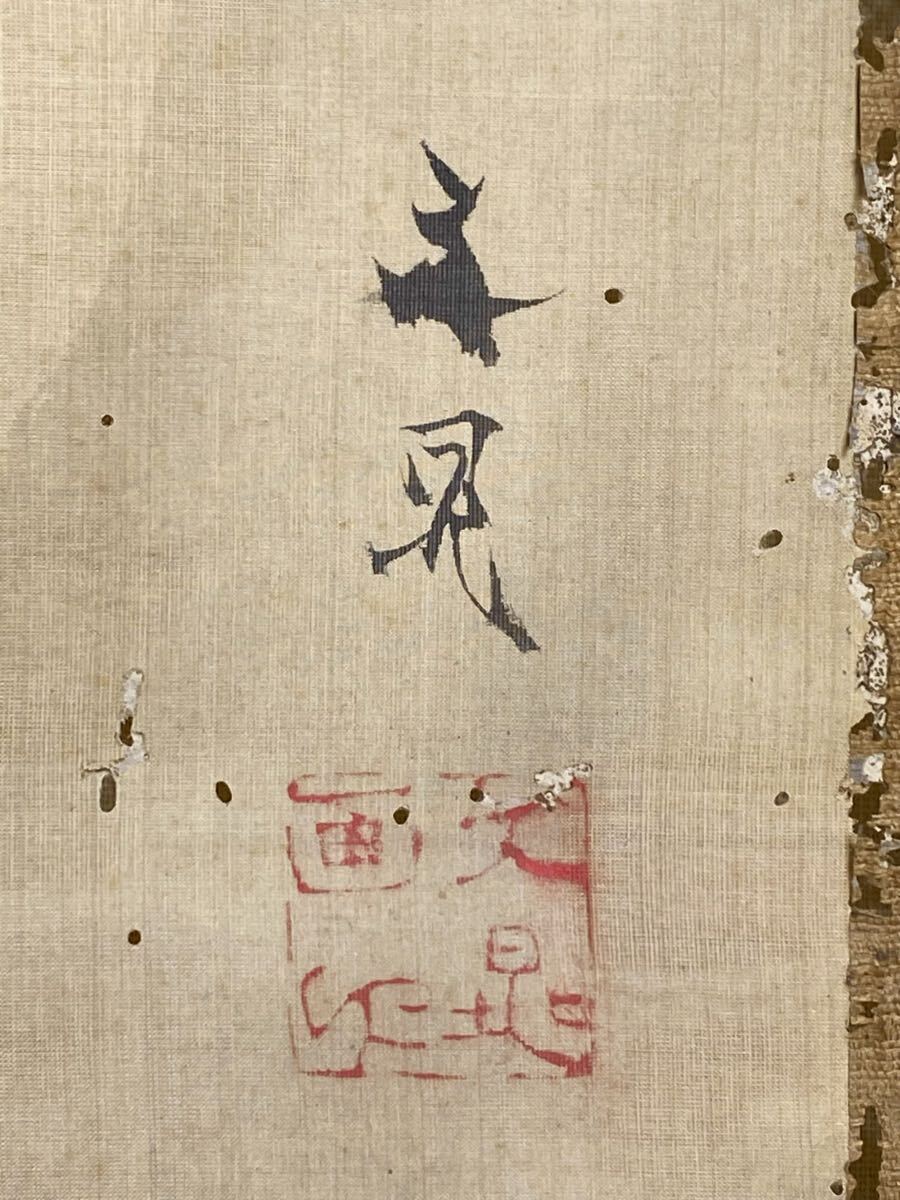 文晁
文晁
画印